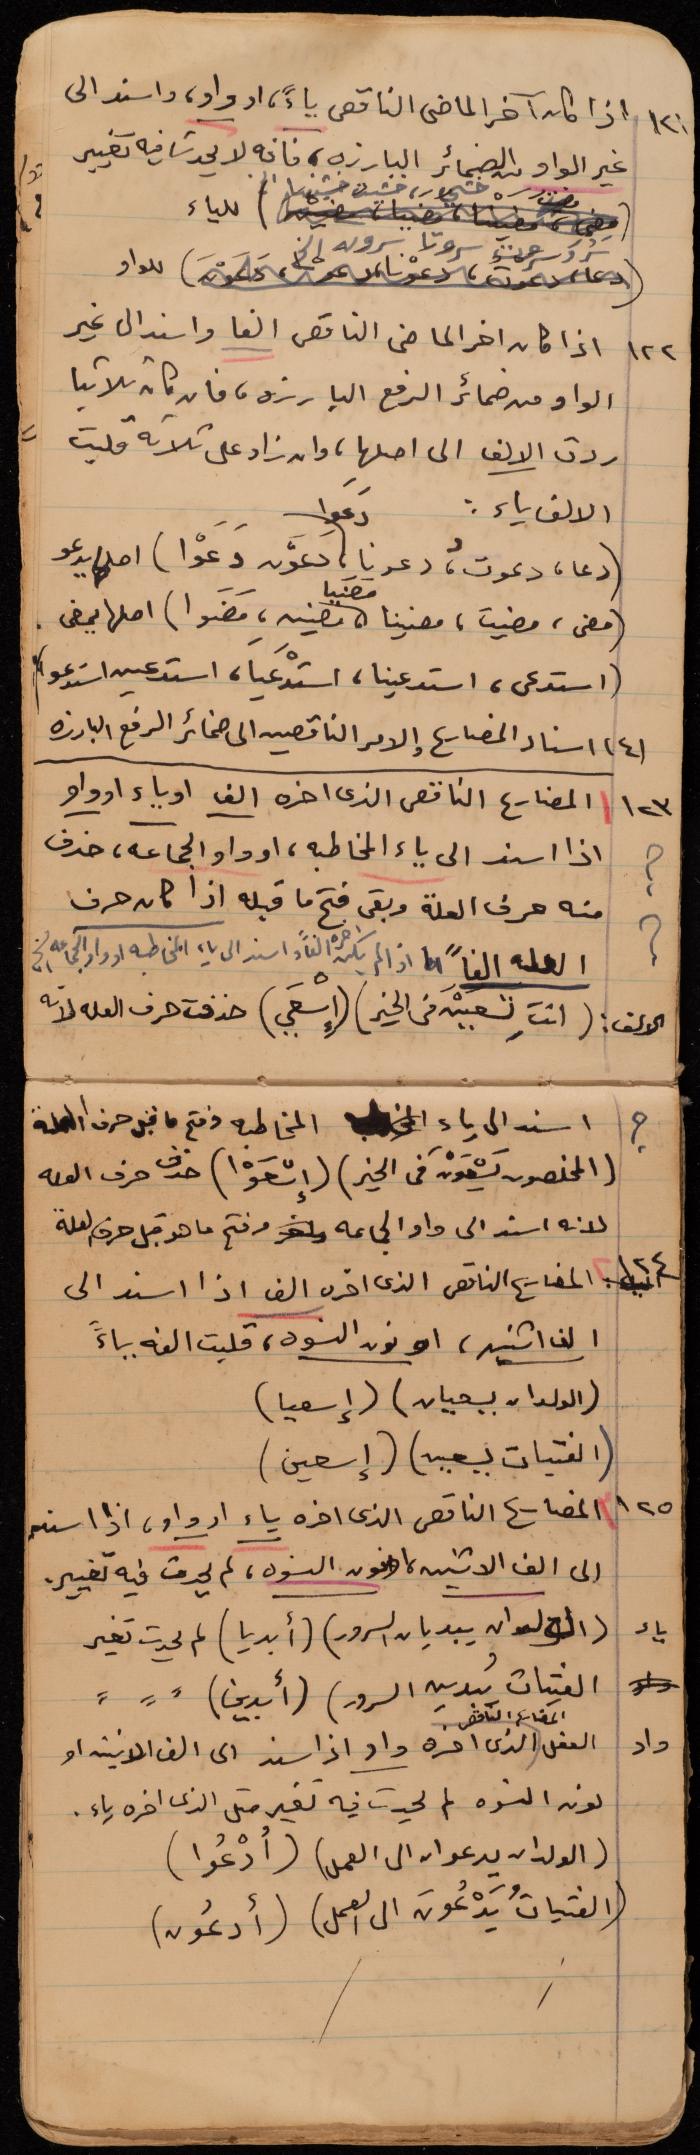 ١٢١ اذا كان آخر الماضي الناقص ياءً، او واو، واسند الى
غير الواو من الضمائر البارزه، فانه لا يحدث فيه تغيير
للياء
(دعا، دعوت، دعونا، دعون) للواو
١٢٢ اذا كان اخر الماضي الناقص الفا واسند الى غير
الواو من ضمائر الرفع البارزه، فان كان ثلاثيا
ردت الالف الى اصلها، وان زاد على ثلاثة قلبت
الالف ياء: دَعَوا
(دعا، دعوت، دعونا، دَعَوْن دَعَوْا) اصلها يدعو
(مضى، مضيت، مضينا، مضَيَا مضين، مَضَوا) اصلها يمضي.
(استدعى، استدعينا، استدْعَيَا، استدعين استدعوا)
١٢٤١ اسناد المضارع والامر الناقصين الى ضمائر الرفع البارزه
١٢٣ المضارع الناقص الذى اخره الف او ياء او واو
اذا اسند الى ياء المخاطبه، او واو الجماعه، حذف
منه حرف العلة وبقى فتح ما قبله اذا كان حرف
العله الفاً اذا لم يكن اخره الفاً واسند الى ياء المخاطبه او واو الجماعه
الالف: (انتِ تسعَيْن فى الخير) (إسْعَيْ) حذفت حرف العله لانه
اسند الى ياء المخاطبه وفتح ما قبل حرف العلة
(المخلصون يَسْعَوْنَ فى الخير) (إسْعَوْا) حذف حرف العله
لانه اسند الى واو الجماعه وفتح ما هو قبل حرف لعلة
١٢٤ المضارع الناقص الذى اخره الف اذا اسند الى
الف اثنين، او نون النسوه، قلبت الفه ياءً
(الولدان يسعيان) (إسعيا)
(الفتيات يسعين) (إسعين)
١٢٥ المضارع الناقص الذى اخره ياء او واو، اذا اسند
الى الف الاثنين، او نون النسوه، لم يحدث فيه تغيير.
ياء (الولدان يبديان السرور) (أبديا) لم يحدث تغير
الفتيات يُبدين السرور) (أبدين) " " "
واو الفعل المضارع الناقص (الذى اخره واو اذا اسند الى الف الاثنين او
نون النسوه لم يحدث فيه تغير مثل الذى اخره ياء.
(الولدان يدعوان الى العمل) (اُدْعُوا)
(الفتياتُ يَدْعُونَ الى العمل) (أدعُون)